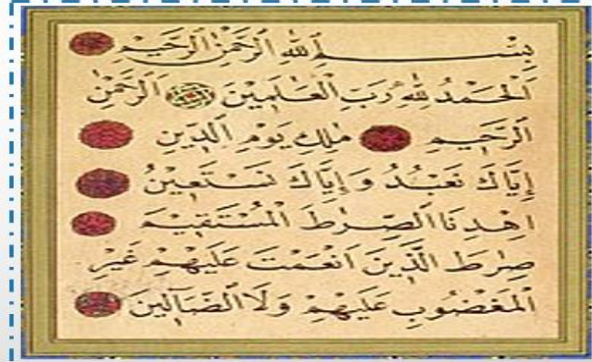 بِسْمِ اللهِ الرَّحْمٰنِ الرَّحِيمِ
اَلْحَمْدُ لِلّٰهِ رَبِّ الْعَالَمِينَ اَلرَّحْمٰنِ
الرَّحِيمِ مٰلِكِ يَوْمِ الدِّينِ
إِيَّاكَ نَعْبُدُ وَإِيَّاكَ نَسْتَعِينُ
اِهْدِنَا الصِّرٰطَ الْمُسْتَقِيمَ
صِرٰطَ الَّذِينَ اَنْعَمْتَ عَلَيْهِمْ غَيْرِ
الْمَغْضُوبِ عَلَيْهِمْ وَلَا الضَّٓالِّينَ